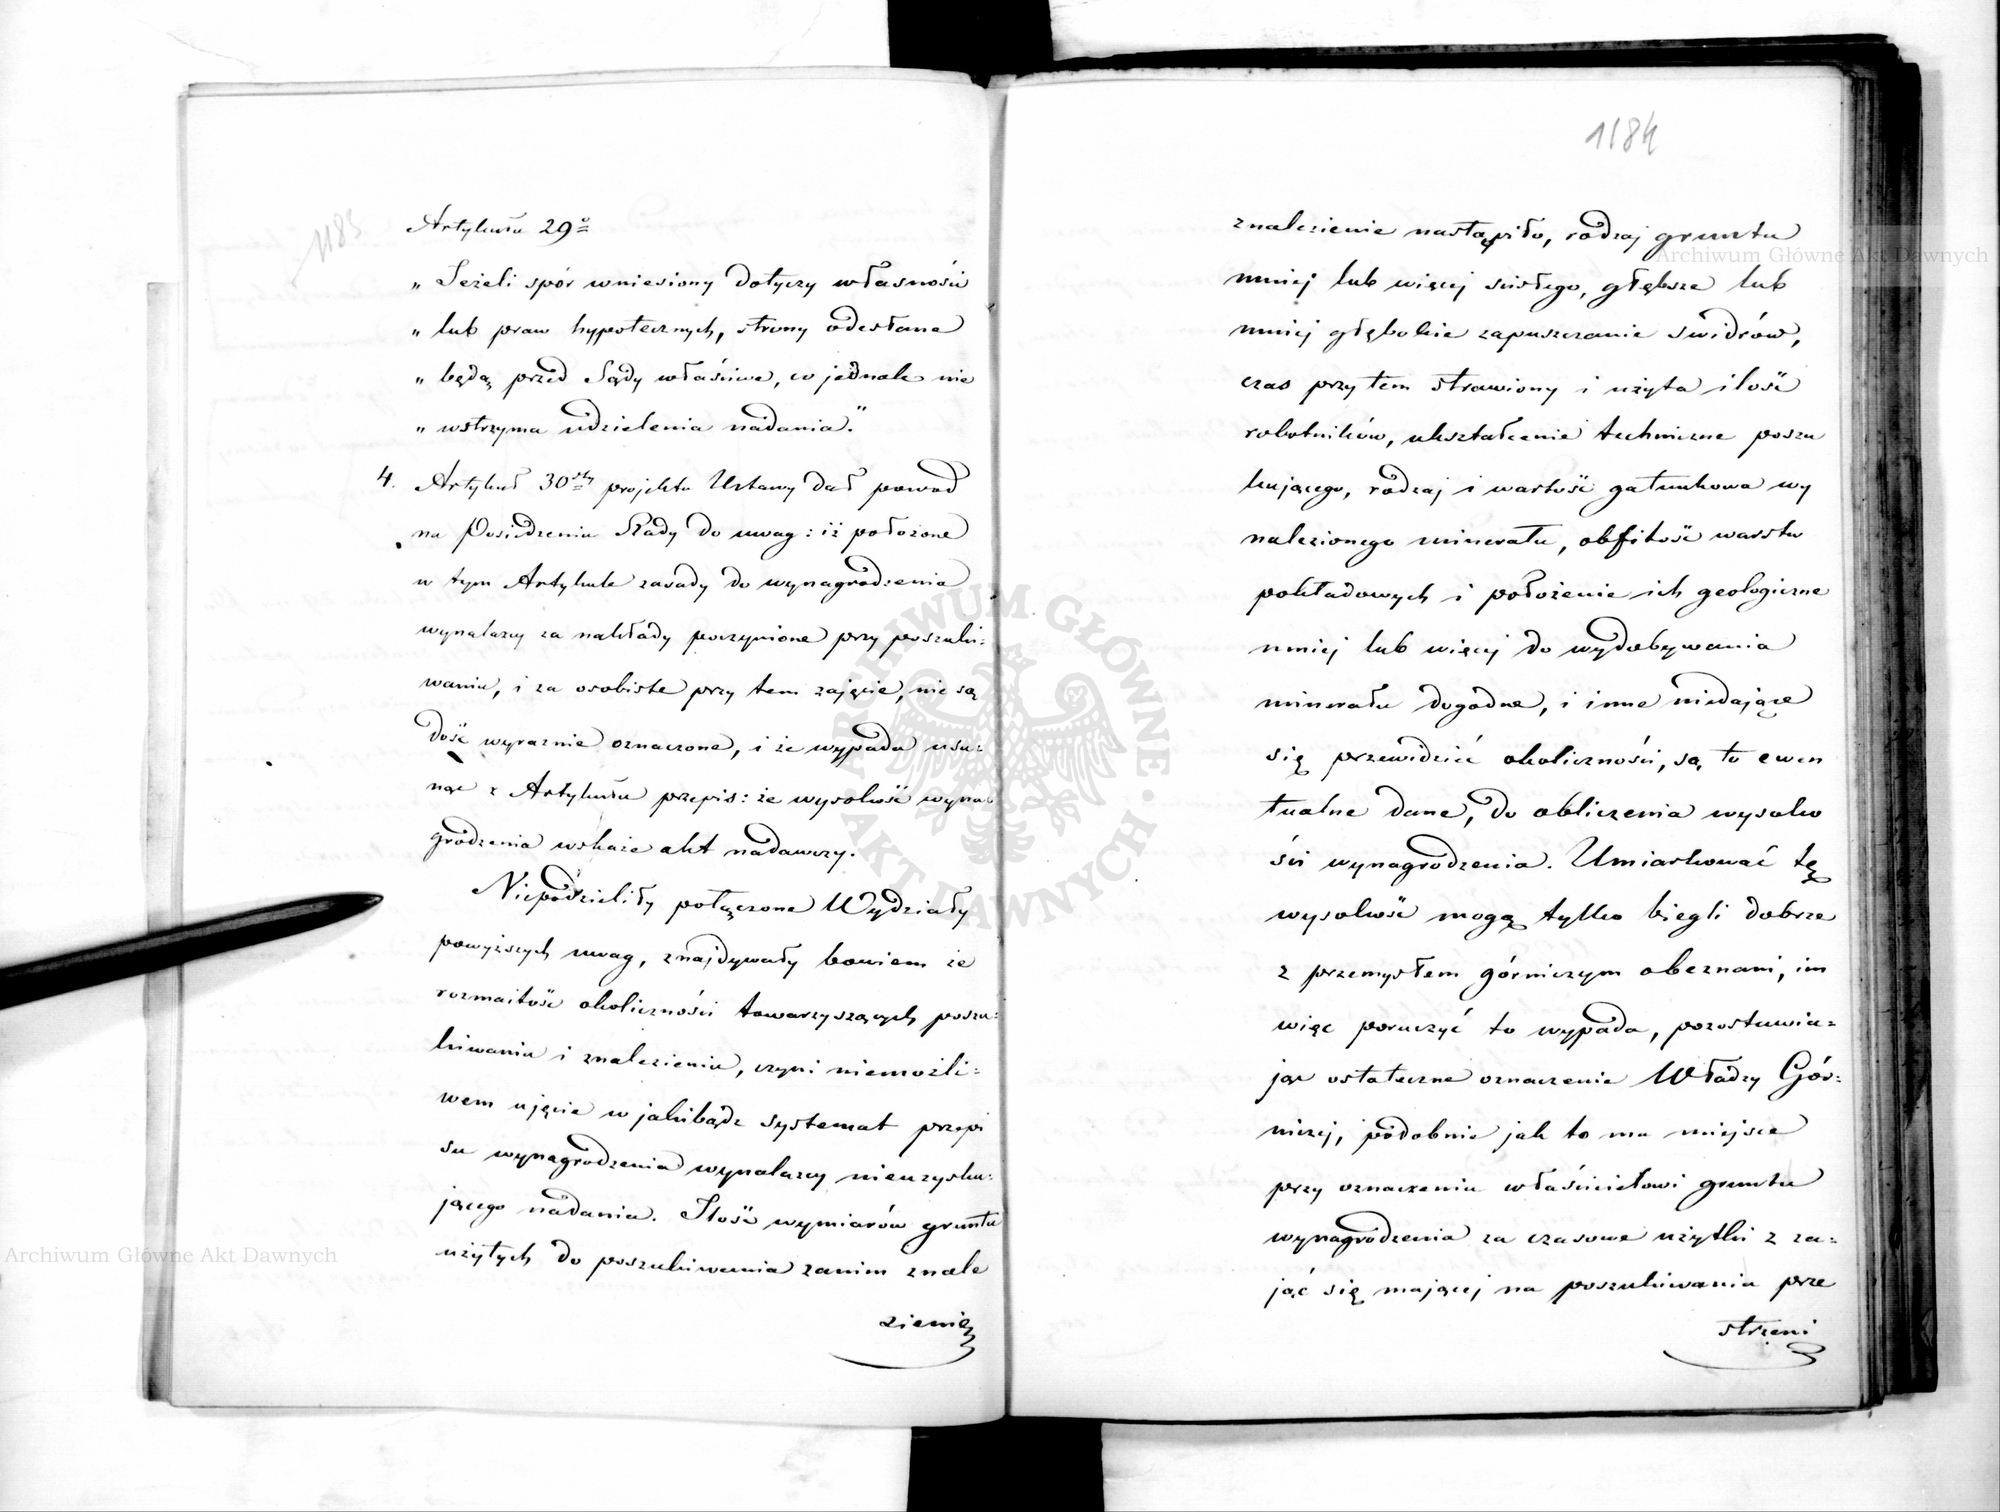 1183
Artykułu 29º
„ Jeżeli spór wniesiony dotyczy własności
„ lub praw hypotecznych, strony odesłane
„ będą przed Sądy właściwe, co jednak nie
„ wstrzyma udzielenia nadania."
4. Artykuł 30sty projektu Ustawy dał powod
na Posiedzeniu Rady do uwag: iż położone
w tym Artykule zasady do wynagrodzenia
wynalazcy za nakłady poczynione przy poszuki=
waniu, i za osobiste przy tem zajęcie, nie są
dość wyraznie oznaczone, i że wypada usu=
nąc z Artykułu przepis: że wysokość wyna=
grodzenia wskaże akt nadawczy.
Niepodzieliły połączone Wydziały
powyższych uwag, znajdywały bowiem że
rozmaitość okoliczności towarzyszących poszu=
kiwaniu i znalezieniu, czyni niemożli=
wem ujęcie w jakibądz systemat przepi
su wynagrodzenia wynalazcy nieuzysku=
jącego nadania. Ilość wymiarów gruntu
użytych do poszukiwania zanim znale
zienie
1184
znalezienie nastąpiło, rodzaj gruntu
mniej lub więcej scisłego, głębsze lub
mniej głębokie zapuszczanie swidrów,
czas przy tem strawiony i użyta ilość
robotników, ukształcenie techniczne poszu
kującego, rodzaj i wartość gatunkowa wy
nalezionego minerału, obfitość warstw
pokładowych i położenie ich geologiczne
mniej lub więcej do wydobywania
minerału dogodne, i inne niedające
się przewidzieć okoliczności, są to ewen
tualne dane, do obliczenia wysoko
ści wynagrodzenia. Umiarkować tę
wysokość mogą tylko biegli dobrze
z przemysłem górniczym obeznani, im
więc poruczyć to wypada, pozostawia=
jąc ostateczne oznaczenie Władzy Gór=
niczej, podobnie jak to ma miejsce
przy oznaczeniu właścicielowi gruntu
wynagrodzenia za czasowe użytki z za=
jąć się mającej na poszukiwania prze
strzeni
Archiwum Główne Akt Dawnych
Archiwum Główne Akt Dawnych
ARCHIWUM GŁÓWNE • AKT DAWNYCH •